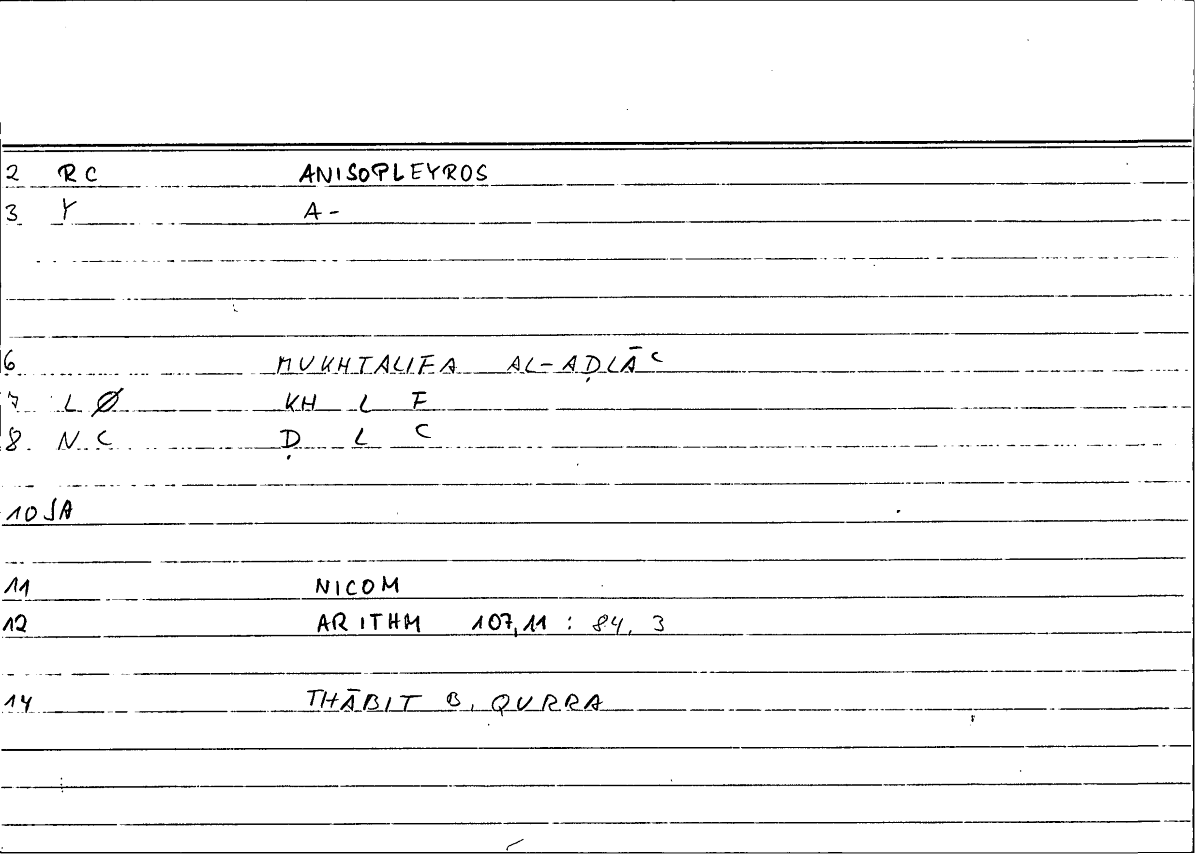 2 RC ANISOPLEYROS
3 Y A-
6 MUKHTALIFA AL-AḌLĀʿ
7 L Ø KH L F
8. N C Ḍ L ʿ
10 JA
11 NICOM
12 ARITHM 107,11 : 84, 3
14 THĀBIT B. QURRA